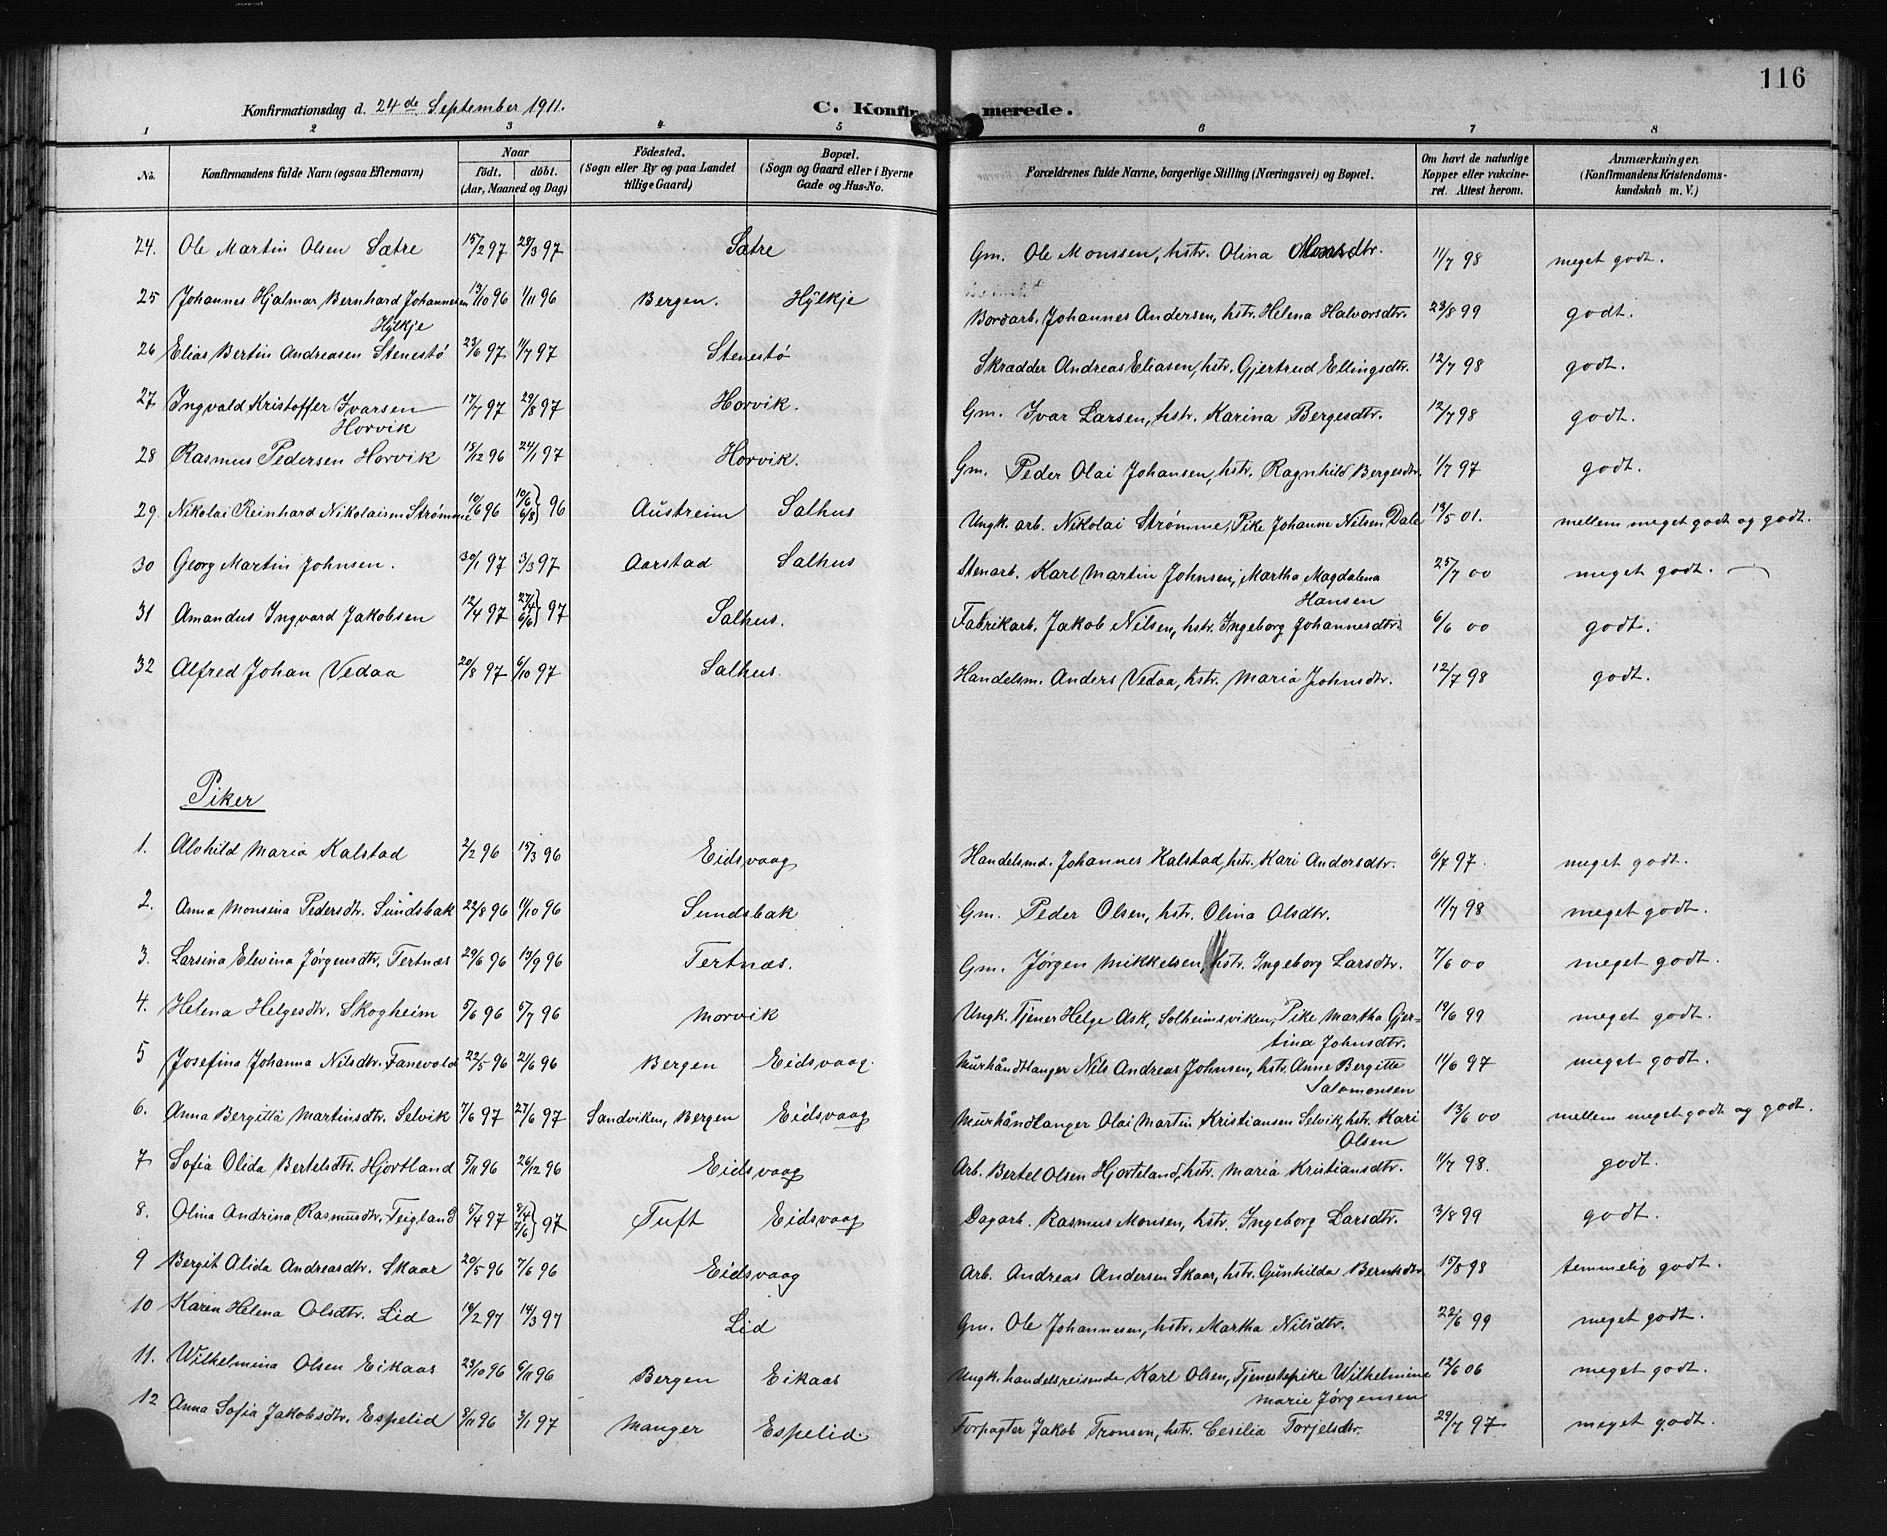 116
Konfirmationsdag d. 24de September 1911. C. Konfirmerede.
1 2 3 4 5 6 7 8
No. Konfirmandens fulde Navn (ogsaa Efternavn) Naar født. døbt. (Aar, Maaned og Dag) Födested. (Sogn eller By og paa Landet tillige Gaard) Bopæl. (Sogn og Gaard eller i Byerne Gade og Hus-No. Forældrenes fulde Navne, borgerlige Stilling (Næringsvei) og Bopæl. Om havt de naturlige Kopper eller vakcineret. Attest herom. Anmærkninger. (Konfirmandens Kristendomskundskab m. V.)
24. Ole Martin Olsen Sætre 15/2 97 28/3 97 Sætre Gm. Ole Monssen, hstr. Olina Monsdtr. 11/7 98 meget godt.
25 Johannes Hjalmar Bernhard Johannesen Hylkje 13/10 96 1/11 96 Bergen. Hylkje Bordarb. Johannes Andersen, hstr. Helena Halvorsdtr. 23/8 99 godt.
26 Elias Bertin Andreasen Stenestø 23/6 97 11/7 97 Stenestø Skrædder Andreas Eliasen, hstr. Gjertrud Ellingsdtr. 12/7 98 godt.
27 Ingvald Kristoffer Ivarsen Horvik 17/7 97 29/8 97 Horvik. Gm. Ivar Larsen, hstr. Karina Bergesdtr. 12/7 98 godt.
28 Rasmus Pedersen Horvik 18/12 96 24/1 97 Horvik. Gm. Peder Olai Johansen, hstr. Ragnhild Bergesdtr. 1/7 97 godt.
29. Nikolai Reinhard Nikolaisen Strømme 10/6 96 10/6 6/8} 96 Austreim Salhus Ungk. arb. Nikolai Strømme, Pike Johanne Nilsen Dale 13/5 01. mellem meget godt og godt.
30 Georg Martin Johnsen. 30/1 97 3/3 97 Aarstad Salhus Stenarb. Karl Martin Johnsen, Martha Magdalena Hansen 25/7 00 meget godt.
31 Amandus Ingvard Jakobsen 12/4 97 27/4 6/6} 97 Salhus. Fabrikarb. Jakob Nilsen, hstr. Ingeborg Johannesdtr. 6/6 00 godt.
32 Alfred Johan Vedaa 20/8 97 6/10 97 Salhus. Handelsm. Anders Vedaa, hstr. Maria Johnsdtr. 12/7 98 godt.
Piker
1. Alvhild Maria Kalstad 2/2 96 15/3 96 Eidsvaag Handelsmd. Johannes Kalstad, hstr. Kari Andersdtr. 6/7 97. meget godt.
2. Anna Monsina Pedersdtr. Sundsbak 22/8 96 11/10 96 Sundsbak Gm. Peder Olsen, hstr. Olina Olsdtr. 11/7 98 meget godt.
3. Larsina Elevina Jørgensdtr. Tertnæs 29/6 96 13/9 96 Tertnæs. Gm. Jørgen Mikkelsen, hstr. Ingeborg Larsdtr. 7/6 00 meget godt.
4. Helena Helgesdtr. Skogheim 5/6 96 5/7 96 Morvik Ungk. Tjener Helge Ask, Solheimsviken, Pike Martha Gjertina Johnsdtr. 19/6 99 meget godt.
5 Josefina Johanna Nilsdtr. Fanevold 22/5 96 21/6 96 Bergen Eidsvaag. Murhåndlanger Nils Andreas Johnsen, hstr. Anne Bergitte Salomonsen 11/6 97 meget godt.
6. Anna Bergitta Martinsdtr. Selvik 7/6 97 27/6 97 Sandviken, Bergen Eidsvaag Murhåndlanger Olai Martin Kristiansen Selvik, hstr. Kari Olsen 13/6 00 mellem meget godt og godt.
7 Sofia Olida Bertelsdtr. Hjortland 5/11 96 26/12 96 Eidsvaag Arb. Bertel Olsen Hjorteland, hstr. Maria Kristiansdtr. 11/7 98. godt.
8. Olina Andrina Rasmusdtr. Teigland 5/4 97 8/4 7/6} 97 Tuft Eidsvaag Dagarb. Rasmus Monsen, hstr. Ingeborg Larsdtr. 3/8 99 godt.
9 Bergit Alida Andreasdtr. Skaar 20/5 96 7/6 96 Eidsvaag Arb. Andreas Andersen Skaar, hstr. Gunhilda Berntsdtr 15/8 98 temmelig godt.
10 Karen Helena Olsdtr. Lid 16/2 97 14/3 97 Lid Gm. Ole Johannesen, hstr. Martha Nilsdtr. 22/6 99 meget godt.
11. Wilhelmina Olsen Eikaas 23/10 96 6/11 96 Bergen Eikaas Ungk. handelsreisende Karl Olsen, Tjenestepike Wilhelmine Marie Jørgensen 12/6 06 meget godt.
12 Anna Sofia Jakobsdtr. Espelid 8/11 96 3/1 97 Manger Espelid. Forpagter Jakob Tronsen, hstr. Cesilia Torjelsdtr. 29/7 97 meget godt.